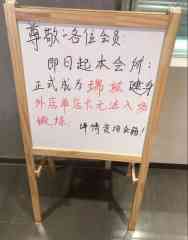 尊敬的各位会员
即日起本会所：
正式成为瑞城健身
外店单店卡无法入场
锻炼
敬请爱用会籍！